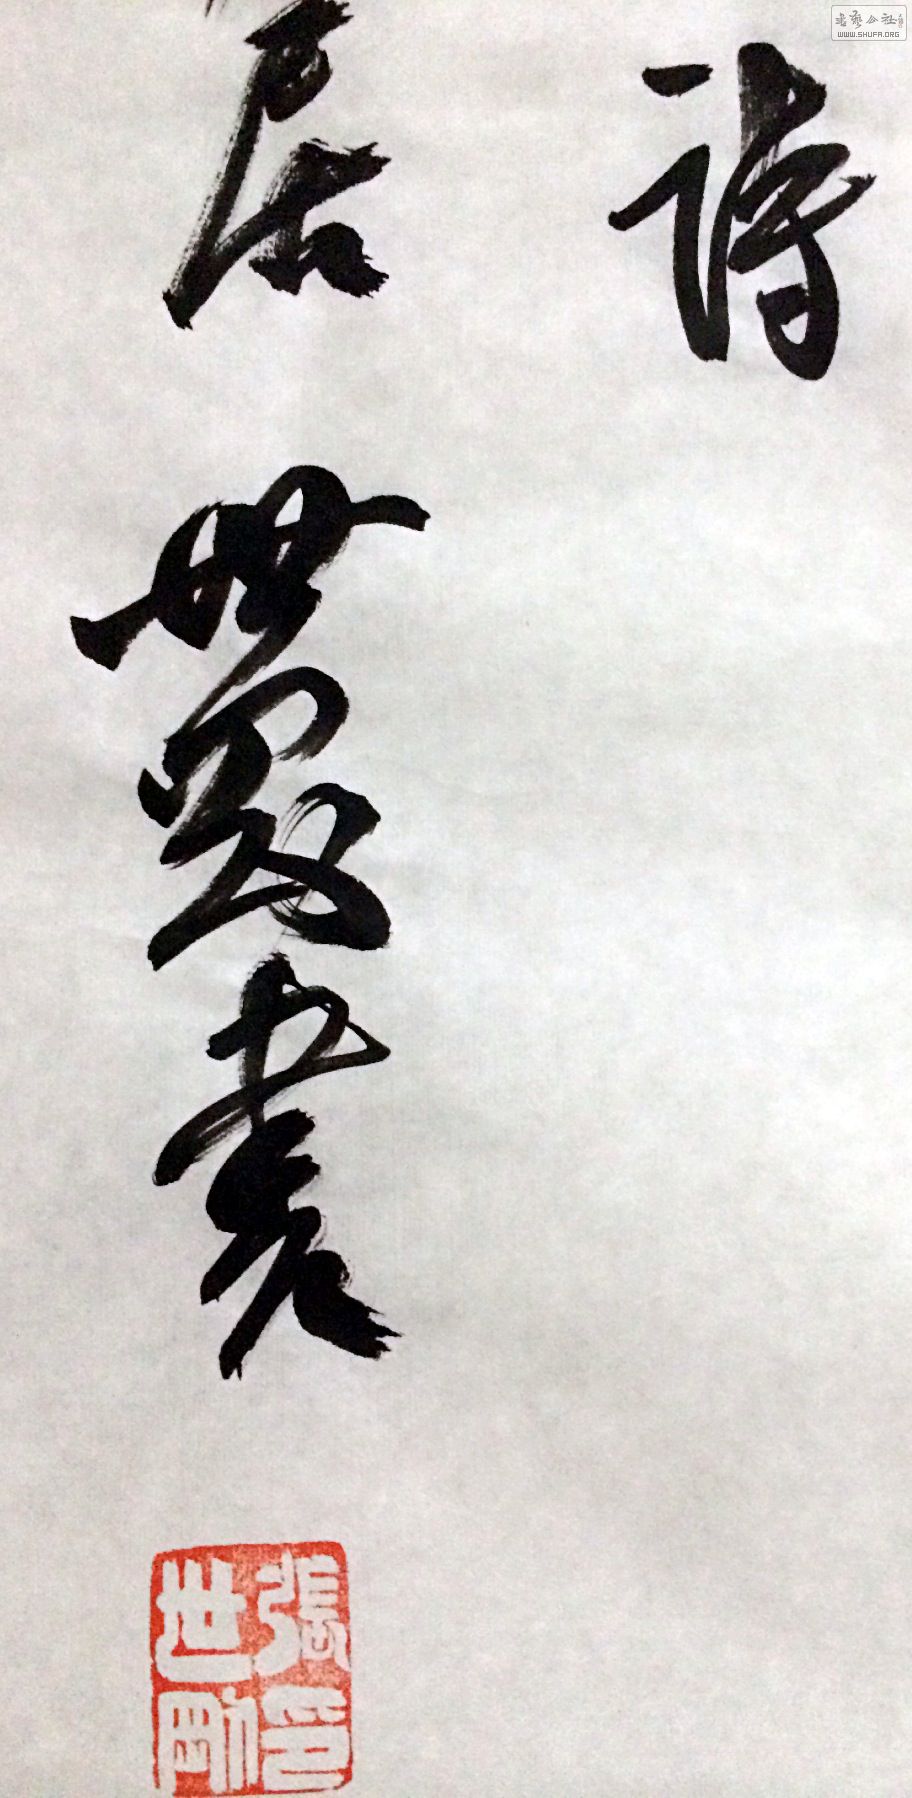 詩
居世剛書
張印世剛
书艺公社
WWW.SHUFA.ORG